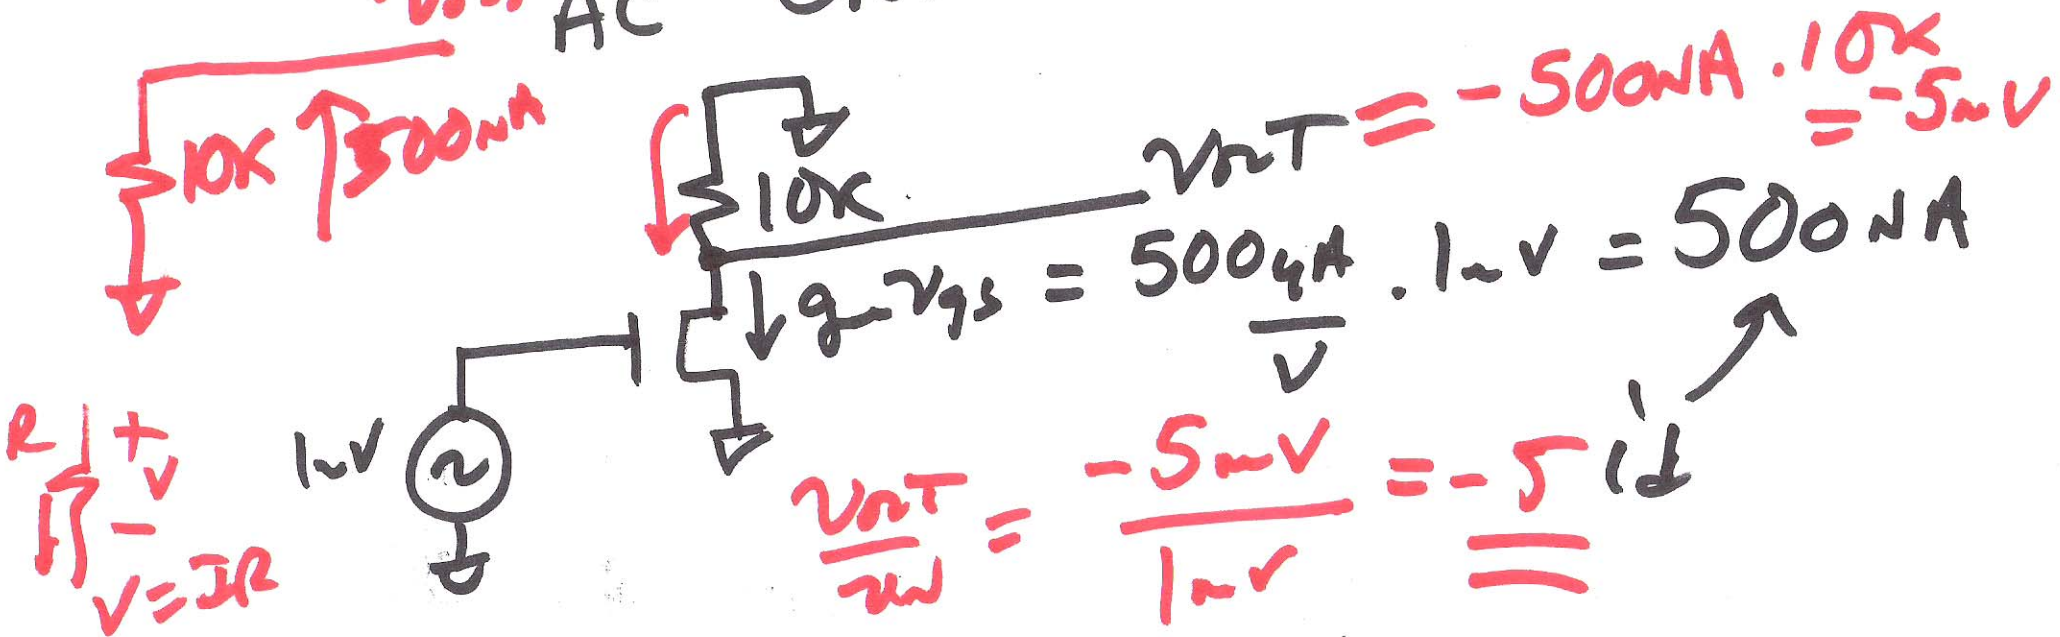 AC
10K 500nA
10K
vout = -500nA . 10K
= -5mV
gmvgs = 500µA/V . 1mV = 500nA
id
1mV
R + V -
V = IR
vout/vin = -5mV/1mV = -5